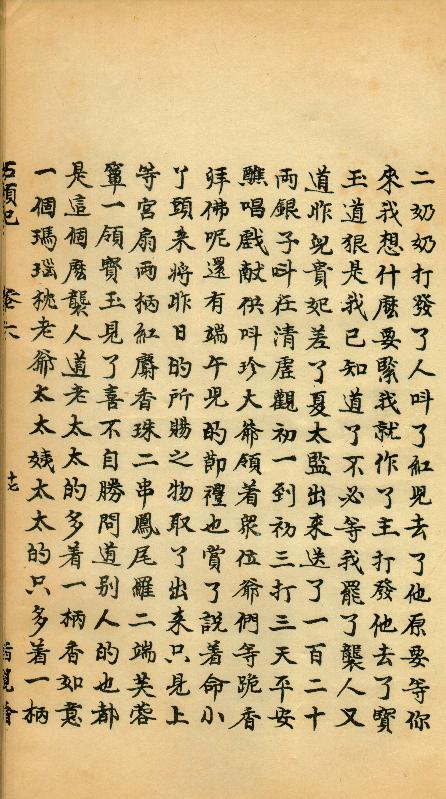 二奶奶打發了人叫了紅兒去了他原要等你
來我想什麽要緊我就作了主打發他去了寳
玉道狠是我已知道了不必等我罷了襲人又
道昨兒貴妃差了夏太監出來送了一百二十
兩銀子叫在清虛觀初一到初三打三天平安
醮唱戲献供叫珍大爺領着衆位爺們等跪香
拜佛呢還有端午兒的節禮也賞了說着命小
丫頭来將昨日的所賜之物取了出来只見上
等宮扇兩柄紅麝香珠二串鳳尾羅二端芙蓉
簟一領寳玉見了喜不自勝問道別人的也都
是這個麽襲人道老太太的多着一柄香如意
一個瑪瑙枕老爺太太姨太太的只多着一柄
石頭記 卷六 十七